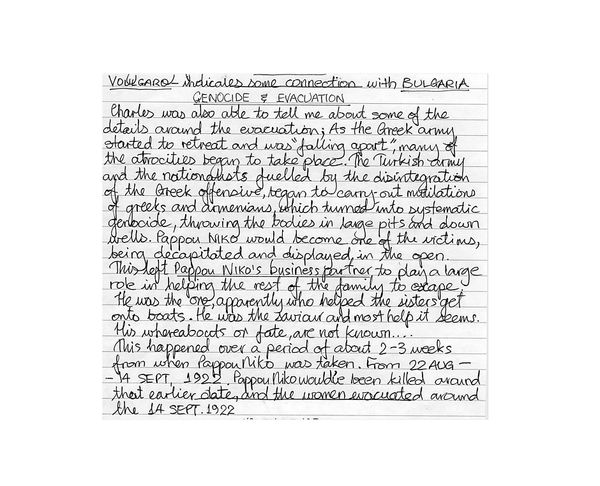 VOULGAROL indicates some connection with BULGARIA
GENOCIDE & EVACUATION
Charles was also able to tell me about some of the
details around the evacuation; As the Greek army
started to retreat and was "falling apart", many of
the atrocities began to take place. The Turkish army
and the nationalists fuelled by the disintegration
of the Greek offensive, began to carry out mutilations
of greeks and armenians, which turned into systematic
genocide, throwing the bodies in large pits and down
wells. Pappou NIKO would become one of the victims,
being decapitated and displayed, in the open.
This left Pappou Niko's business partner, to play a large
role in helping the rest of the family to escape.
He was the one, apparently who helped the sisters get
onto boats. He was the saviour and most help it seems.
His whereabouts or fate, are not known....
This happened over a period of about 2-3 weeks
from when Pappou Niko was taken. From 22 AUG -
- 14 SEPT. 1922. Pappou Niko would've been killed around
that earlier date, and the women evacuated around
the 14 SEPT. 1922